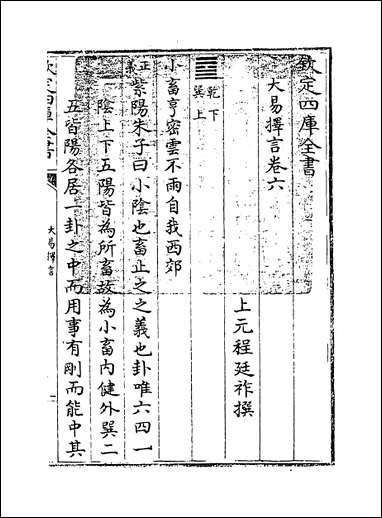 欽定四庫全書
大易擇言卷六
上元程廷祚撰
乾下
巽上
小畜亨密雲不雨自我西郊
正義
紫陽朱子曰小陰也畜止之之義也卦唯六四一
陰上下五陽皆為所畜故為小畜內健外巽二
五皆陽各居一卦之中而用事有剛而能中其
欽定四庫全書
大易擇言
一